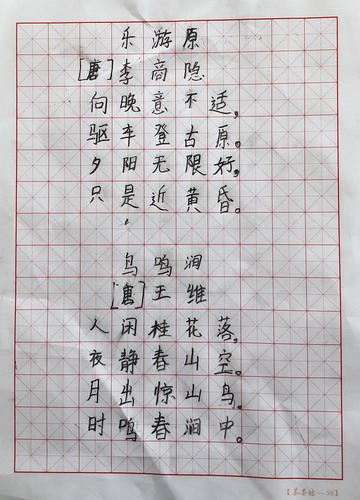 乐游原
[唐]李商隐
向晚意不适,
驱车登古原。
夕阳无限好,
只是近黄昏。
鸟鸣涧
[唐]王维
人闲桂花落,
夜静春山空。
月出惊山鸟,
时鸣春涧中。